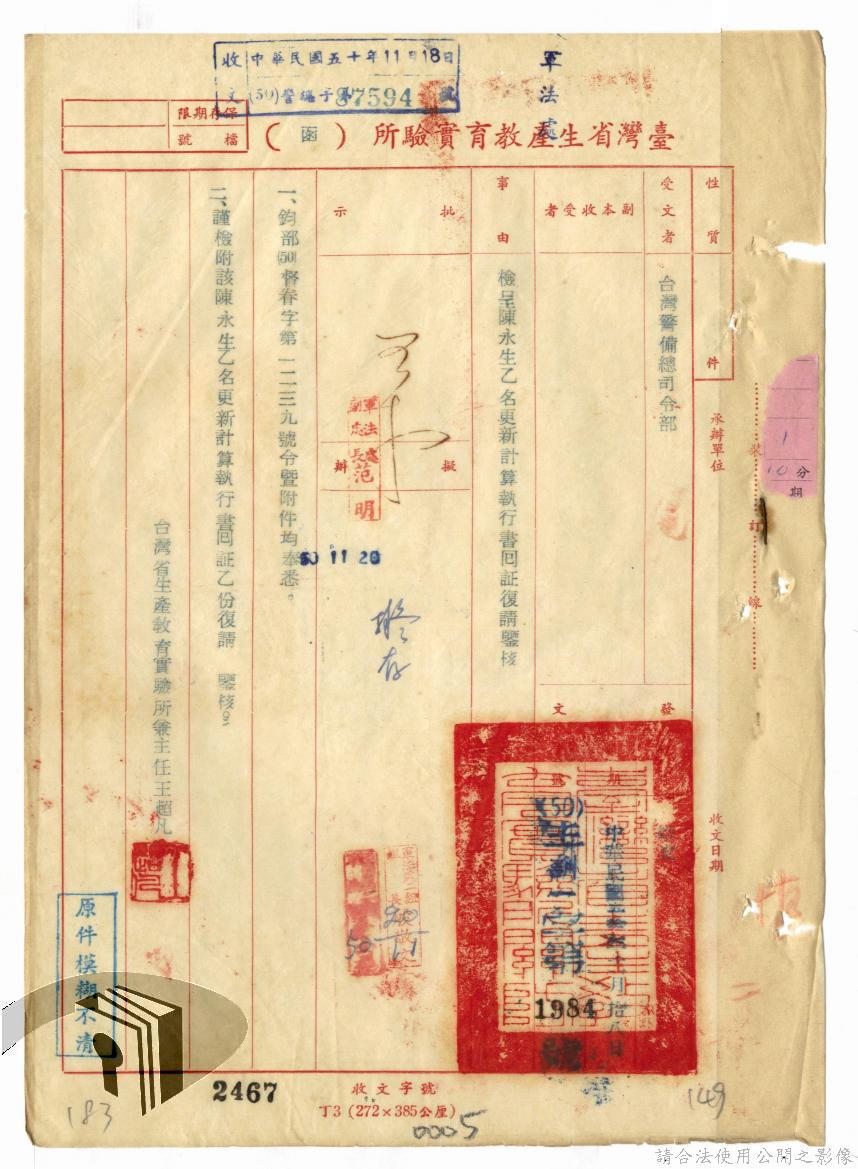 收 中華民國五十年11月18日
文 (50)警編子 87594 號
軍法處
臺灣省生產教育實驗所（函）
保存期限
檔號
性質
件
受文者
台灣警備總司令部
副本收受者
事由
檢呈陳永生乙名更新計算執行書回証復請鑒核
批示
擬辦
軍法處
副處長范明
50 11 20
擬存
一、鈞部(50)督春字第一二三九號令暨附件均奉悉。
二、謹檢附該陳永生乙名更新計算執行書回証乙份復請　鑒核。
台灣省生產教育實驗所兼主任王超凡
承辦單位
收文日期
裝訂線
1
10 分
期
發文
期
號
中華民國五十年十一月拾八日
(50)
1984 號
原件模糊不清
2467
收文字號
丁3 (272×385公厘)
0005
183
149
請合法使用公開之影像